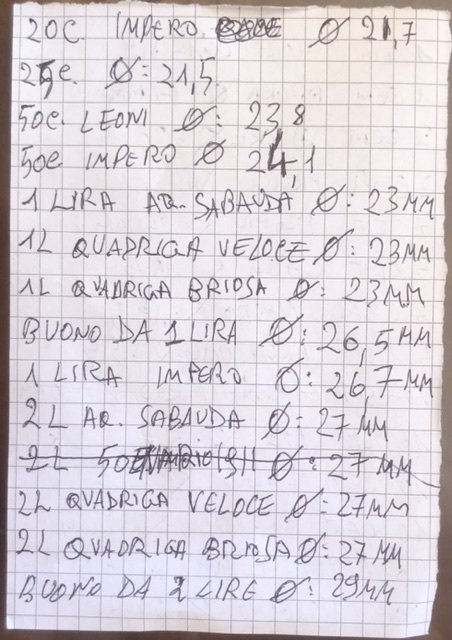 20C. IMPERO Ø 21,7
25C. Ø: 21,5
50C. LEONI Ø: 23,8
50C IMPERO Ø 24,1
1 LIRA AQ. SABAUDA Ø: 23MM
1L QUADRIGA VELOCE Ø: 23MM
1L QUADRIGA BRIOSA Ø: 23MM
BUONO DA 1 LIRA Ø: 26,5MM
1 LIRA IMPERO Ø: 26,7MM
2L AQ. SABAUDA Ø: 27MM
2L Ø: 27 MM
2L QUADRIGA VELOCE Ø: 27MM
2L QUADRIGA BRIOSA Ø: 27MM
BUONO DA 2 LIRE Ø: 29MM